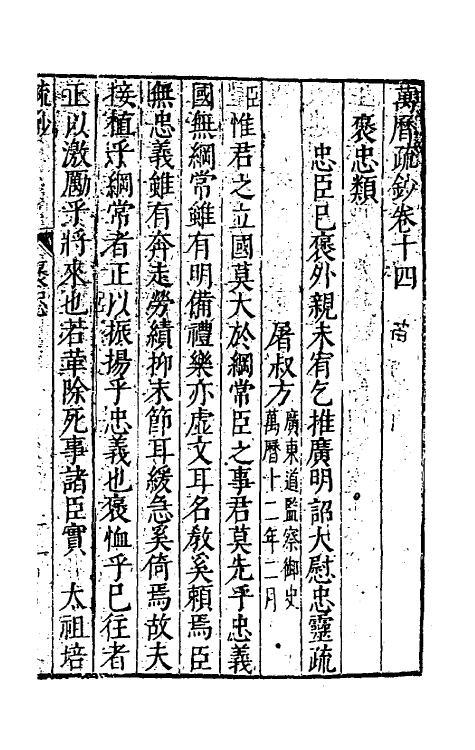 萬曆疏鈔卷十四
褒忠類
忠臣已褒外親未宥乞推廣明詔大慰忠靈疏
屠叔方廣東道監察御史
萬曆十二年二月
臣惟君之立國莫大於綱常臣之事君莫先乎忠義
國無綱常雖有明備禮樂亦虛文耳名敎奚賴焉臣
無忠義雖有奔走勞績抑末節耳緩急奚倚焉故夫
接植乎綱常者正以振揚乎忠義也褒恤乎已往者
正以激勵乎將來也若革除死事諸臣實　太祖培
疏鈔
褒忠